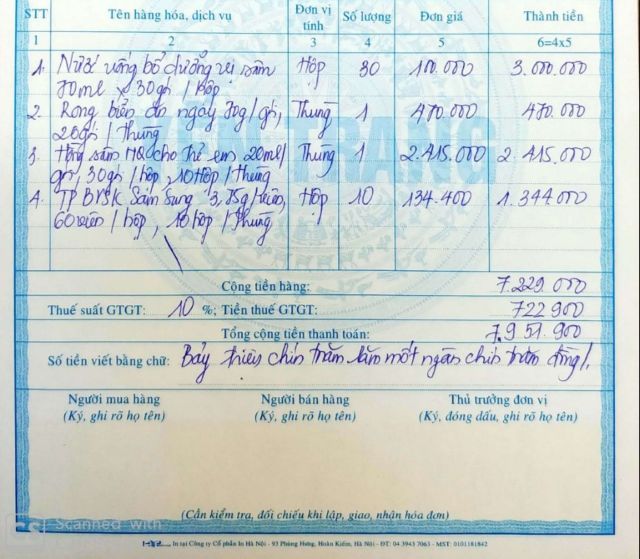 STT Tên hàng hóa, dịch vụ Đơn vị tính Số lượng Đơn giá Thành tiền
1 2 3 4 5 6=4x5
1. Nước uống bổ dưỡng vị sâm Hộp 30 100.000 3.000.000
70ml x 30gói / hộp
2. Rong biển ăn ngay 30g/gói, Thùng 1 470.000 470.000
20gói / Thùng
3. Hồng sâm HQ cho trẻ em 20ml/ Thùng 1 2.415.000 2.415.000
gói, 30gói / hộp, 10Hộp / thùng
4. TP BVSK Sâm Sung 3,75g/viên, Hộp 10 134.400 1.344.000
60viên / hộp, 10hộp / Thùng
TRANG
Cộng tiền hàng: 7.229.000
Thuế suất GTGT: 10 %; Tiền thuế GTGT: 722 900
Tổng cộng tiền thanh toán: 7.951.900
Số tiền viết bằng chữ: Bảy triệu chín trăm năm mốt ngàn chín trăm đồng/.
Người mua hàng Người bán hàng Thủ trưởng đơn vị
(Ký, ghi rõ họ tên) (Ký, ghi rõ họ tên) (Ký, đóng dấu, ghi rõ họ tên)
(Cần kiểm tra, đối chiếu khi lập, giao, nhận hóa đơn)
CS Scanned with
In tại Công ty Cổ phần In Hà Nội - 93 Phùng Hưng, Hoàn Kiếm, Hà Nội - ĐT: 04 3943 7063 - MST: 0101181842